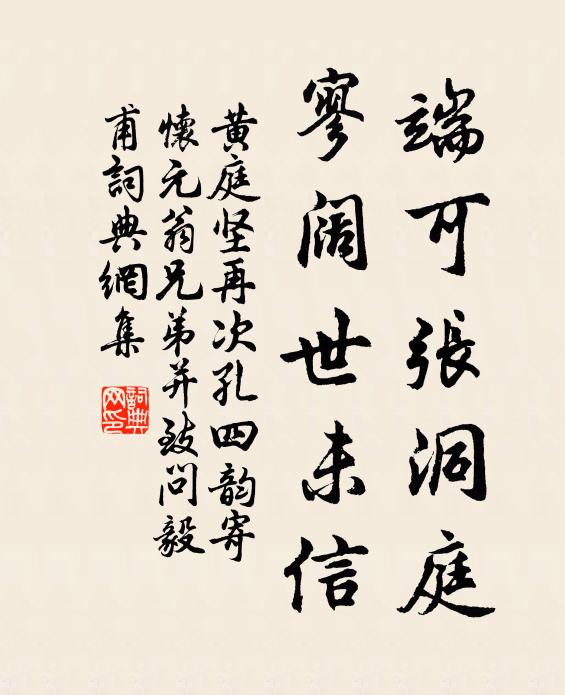 端可張洞庭
寥阔世未信
黄庭坚再次孔四韵寄
懷元翁兄弟并致问毅
甫詞典網集
詞典
网印